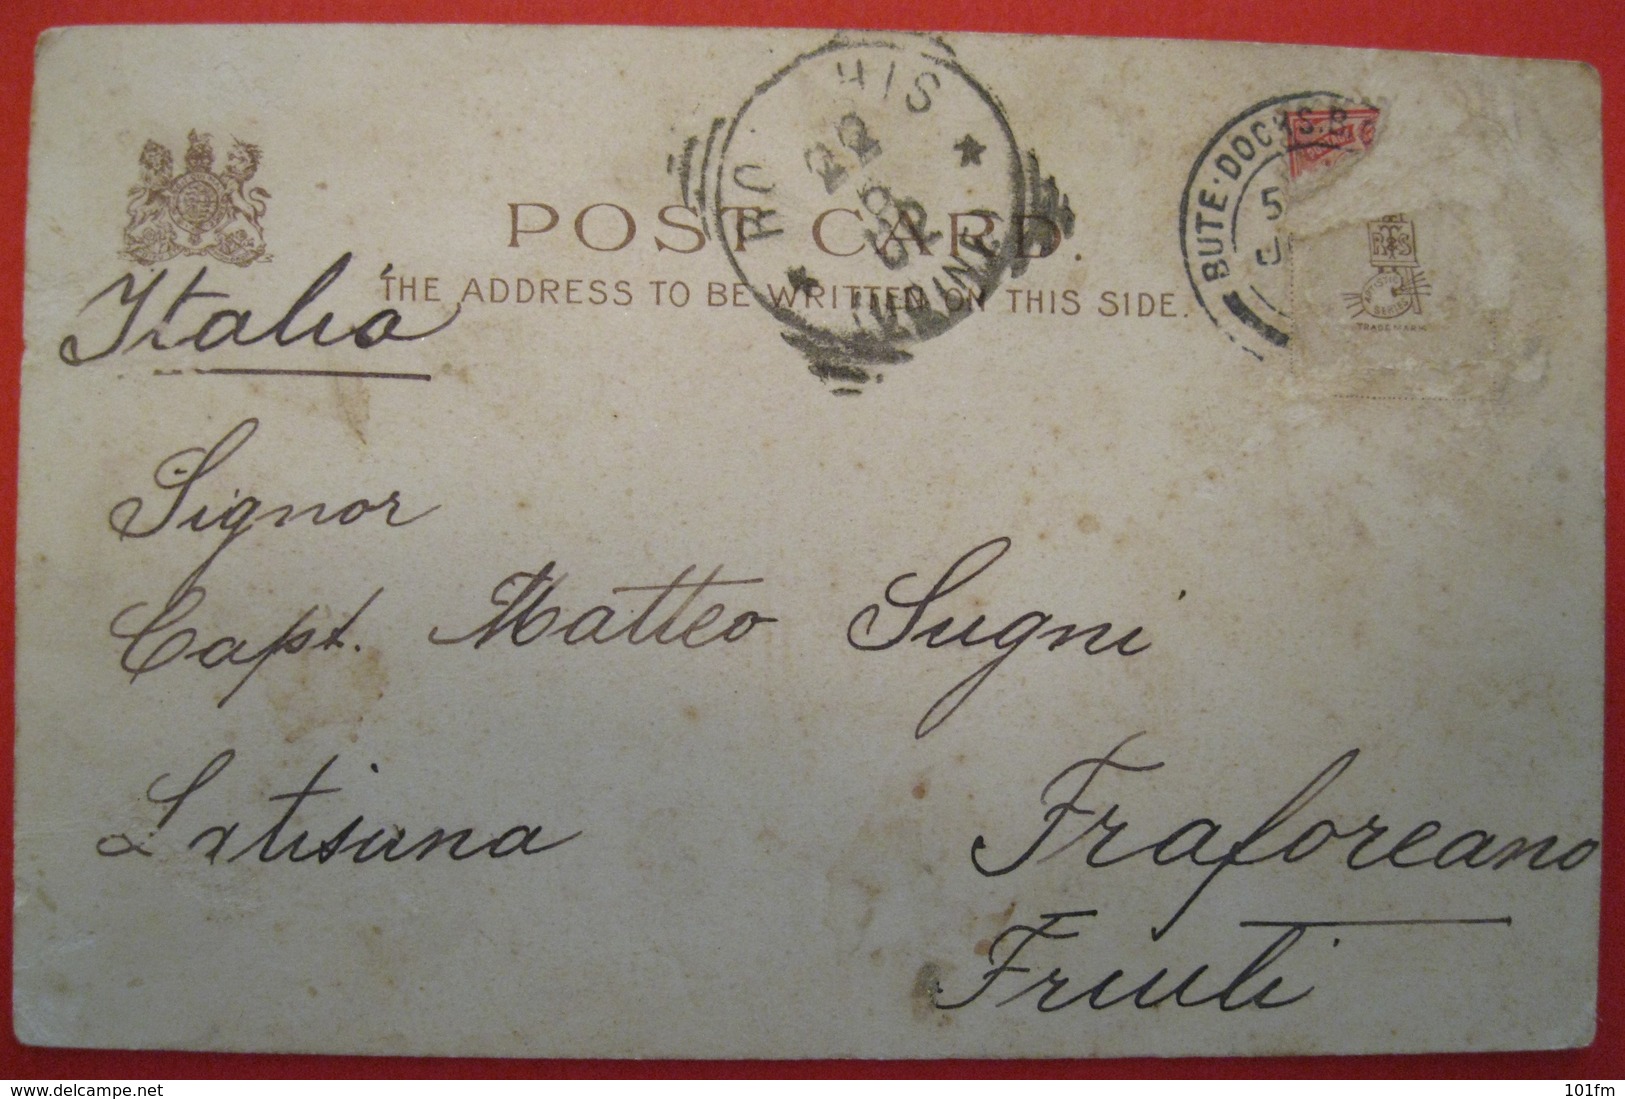 POST CARD.
THE ADDRESS TO BE WRITTEN ON THIS SIDE.
22
8
02
(UDINE)
BUTE·DOCKS.B
5
ARTISTIC
SERIES
TRADE MARK
Italia
Signor
Capt. Matteo Sugni
Latisana
Fraforeano
Friuli
delcampe.net
101fm